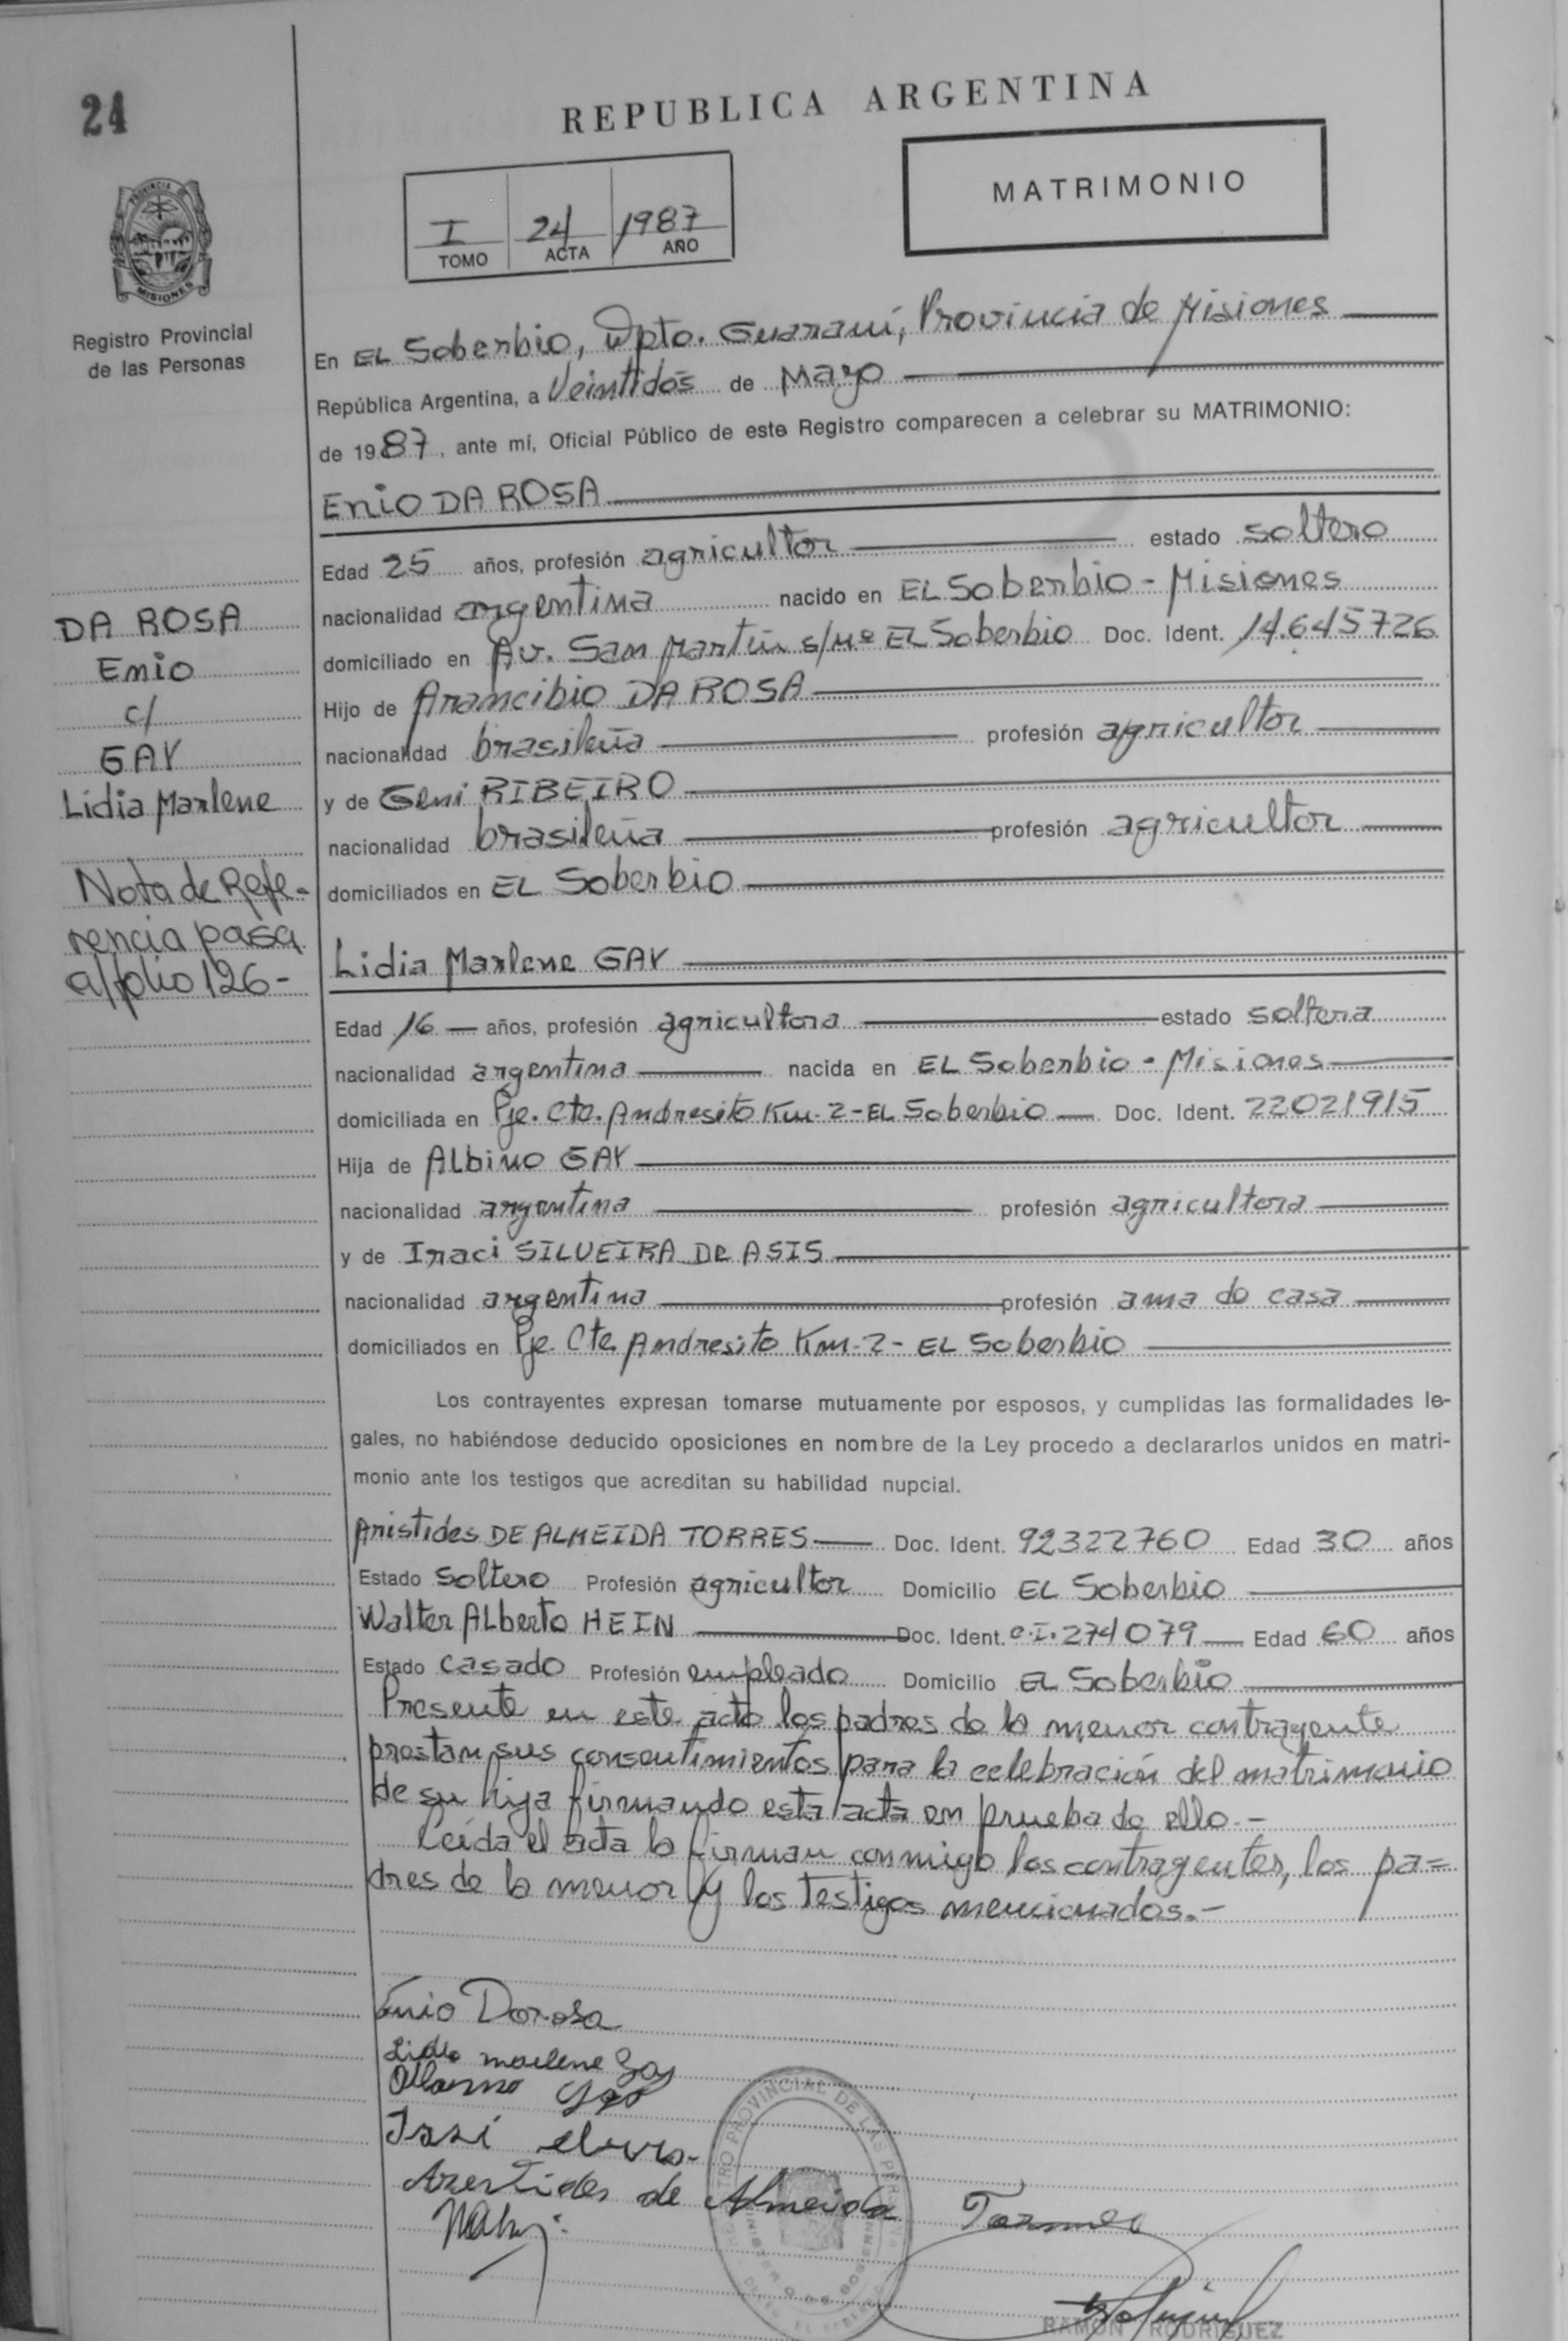 24
REPUBLICA ARGENTINA
MATRIMONIO
I 24 1987
TOMO ACTA AÑO
PROVINCIA DE
MISIONES
Registro Provincial
de las Personas
En EL Soberbio, Dpto. Guaraní, Provincia de Misiones
República Argentina, a Veintidós de Mayo
de 1987, ante mí, Oficial Público de este Registro comparecen a celebrar su MATRIMONIO:
Enio DA ROSA
Edad 25 años, profesión agricultor estado soltero
nacionalidad argentina nacido en EL Soberbio - Misiones
domiciliado en Av. San Martín s/Nº EL Soberbio Doc. Ident. 14.645726
Hijo de Arancibio DA ROSA
nacionalidad brasileña profesión agricultor
y de Geni RIBEIRO
nacionalidad brasileña profesión agricultor
domiciliados en EL Soberbio
DA ROSA
Enio
c/
GAY
Lidia Marlene
Nota de Refe-
rencia pasa
a/folio 126-
Lidia Marlene GAY
Edad 16 años, profesión agricultora estado soltera
nacionalidad argentina nacida en EL Soberbio - Misiones
domiciliada en Pje. Cte. Andresito Km. 2 - EL Soberbio Doc. Ident. 22021915
Hija de ALbino GAY
nacionalidad argentina profesión agricultora
y de Iraci SILVEIRA DE ASIS
nacionalidad argentina profesión ama de casa
domiciliados en Pje. Cte. Andresito Km. 2 - EL Soberbio
Los contrayentes expresan tomarse mutuamente por esposos, y cumplidas las formalidades le-
gales, no habiéndose deducido oposiciones en nombre de la Ley procedo a declararlos unidos en matri-
monio ante los testigos que acreditan su habilidad nupcial.
Aristides DE ALMEIDA TORRES Doc. Ident. 92322760 Edad 30 años
Estado Soltero Profesión agricultor Domicilio EL Soberbio
Walter ALberto HEIN Doc. Ident. C.I. 274079 Edad 60 años
Estado casado Profesión empleado Domicilio EL Soberbio
Presente en este acto los padres de la menor contrayente
prestan sus consentimientos para la celebración del matrimonio
de su hija firmando esta acta en prueba de ello.-
Leída el acta la firman conmigo los contrayentes, los pa=
dres de la menor y los testigos mencionados.-
Enio Darosa
Lidia marlene Gay
REGISTRO PROVINCIAL DE LAS PERSONAS
de Almeida
RAMON RODRIGUEZ